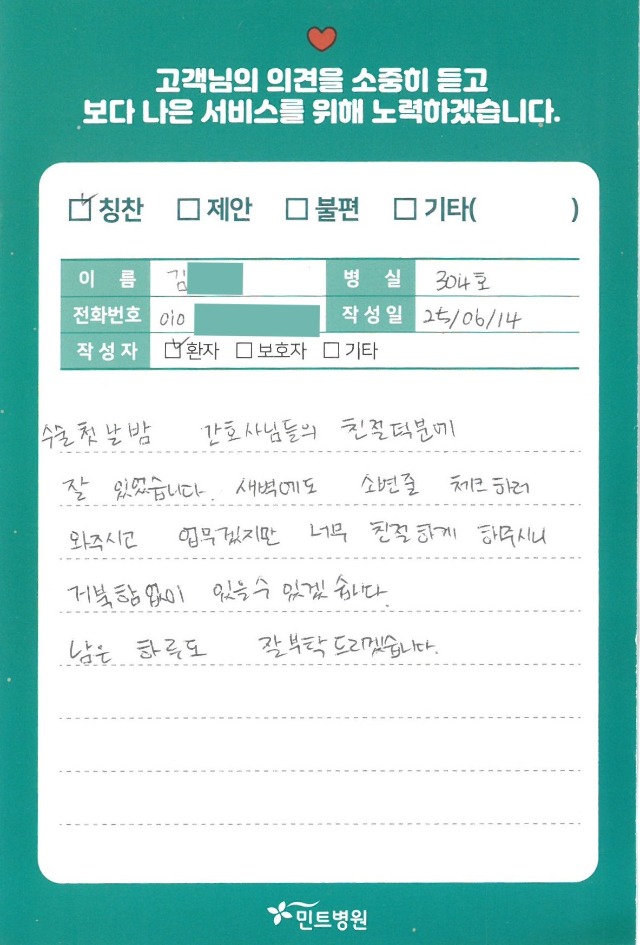 고객님의 의견을 소중히 듣고
보다 나은 서비스를 위해 노력하겠습니다.
☑ 칭찬 □ 제안 □ 불편 □ 기타( )
이 름 김 병 실 304호
전화번호 010 작성일 25/06/14
작성자 ☑ 환자 □ 보호자 □ 기타
수술 첫날밤 간호사님들의 친절덕분에
잘 있었습니다. 새벽에도 소변줄 체크하러
와주시고 업무겠지만 너무 친절하게 해주시니
거북함없이 있을수 있겠습니다.
남은 하루도 잘부탁드리겠습니다.
민트병원